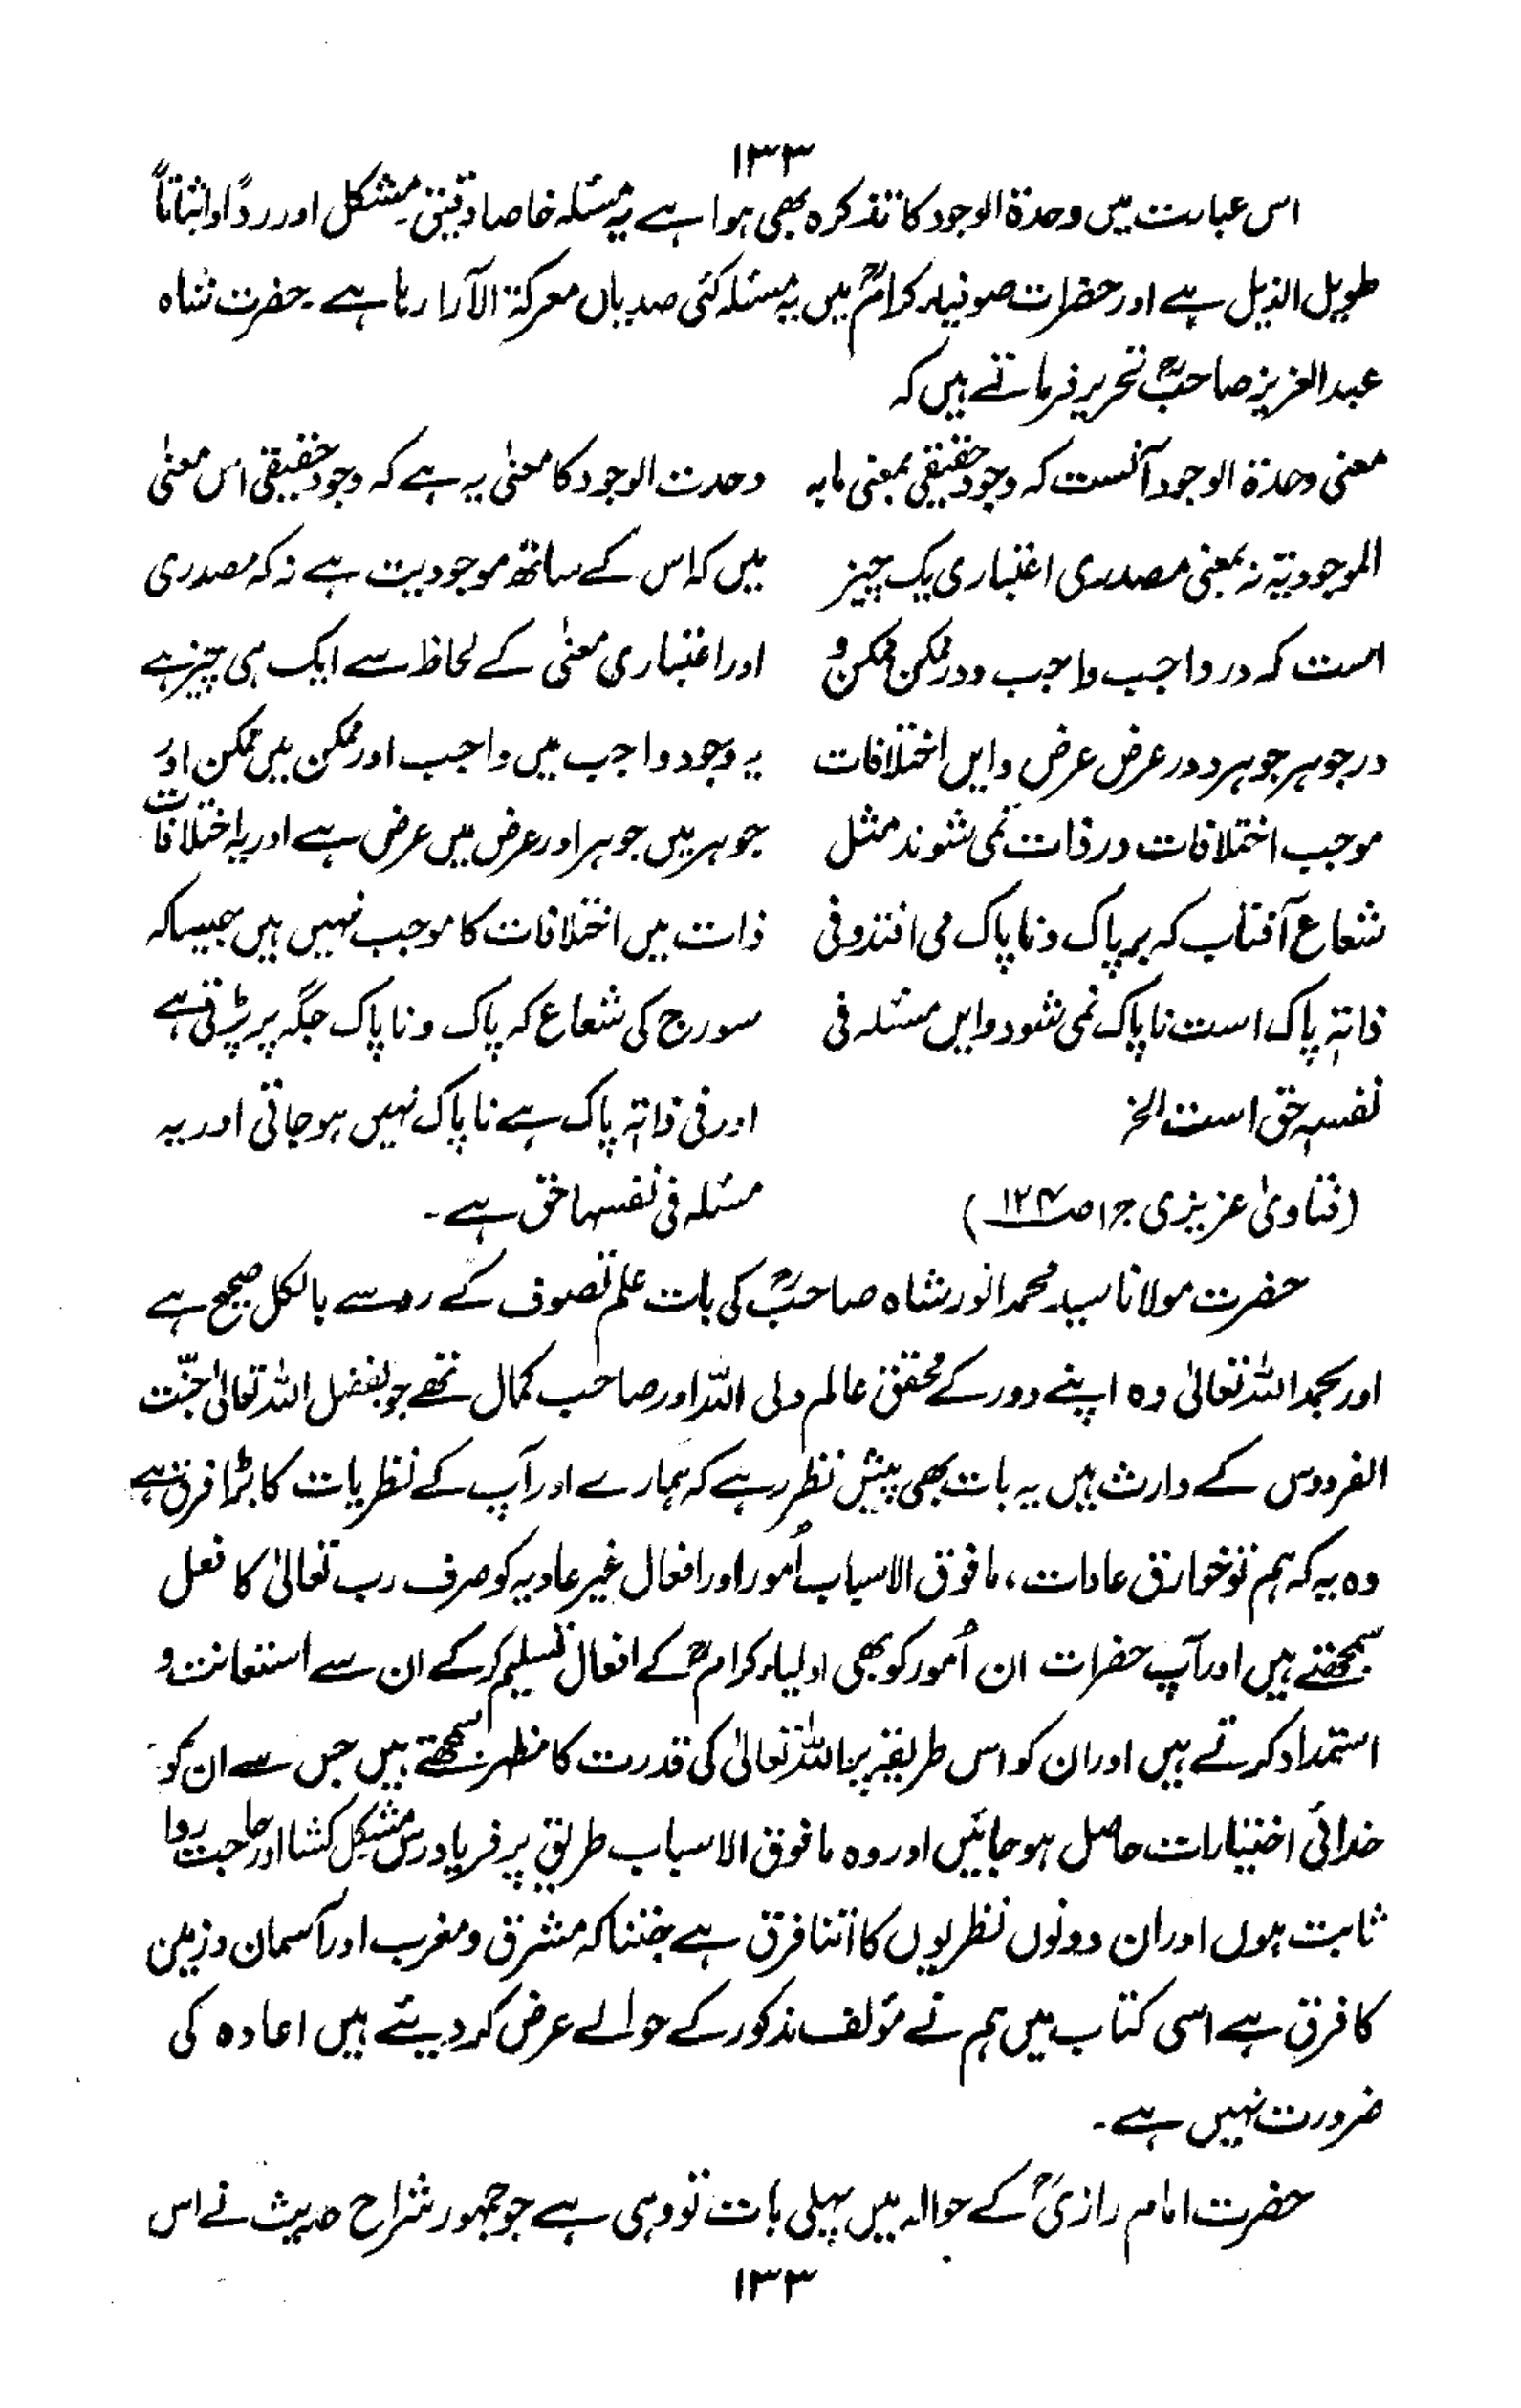 ١٣٣
اس عبارت میں وحدۃ الوجود کا تذکرہ بھی ہوا ہے یہ مسئلہ خاصا دقیق۔ مشکل اور رداً واثباتاً
طویل الذیل ہے اور حضرات صوفیاء کرامؒ میں یہ مسئلہ کئی صدیاں معرکۃ الآرا رہا ہے۔ حضرت شاہ
عبدالعزیز صاحبؒ تحریر فرماتے ہیں کہ
معنی وحدۃ الوجود آنست کہ وجود حقیقی بمعنی مابہ
الموجودیۃ نہ بمعنی مصدری اعتباری یک چیز
است کہ در واجب واجب ودر ممکن ممکن و
در جوہر جوہر و در عرض عرض وایں اختلافات
موجب اختلافات در ذات نمی شوند مثل
شعاع آفتاب کہ بر پاک و ناپاک می افتد وفی
ذاتہٖ پاک است ناپاک نمی شود وایں مسئلہ فی
نفسہٖ حق است الخ
(فتاویٰ عزیزی ج۱ ص۱۲۴)
وحدت الوجود کا معنیٰ یہ ہے کہ وجود حقیقی اس معنیٰ
میں کہ اس کے ساتھ موجودیت ہے نہ کہ مصدری
اور اعتباری معنیٰ کے لحاظ سے ایک ہی چیز ہے
یہ وجود واجب میں واجب اور ممکن میں ممکن اور
جوہر میں جوہر اور عرض میں عرض ہے اور یہ اختلافات
ذات میں اختلافات کا موجب نہیں ہیں جیساکہ
سورج کی شعاع کہ پاک و ناپاک جگہ پر پڑتی ہے
اور فی ذاتہٖ پاک ہے ناپاک نہیں ہوجاتی اور یہ
مسئلہ فی نفسہا حق ہے۔
حضرت مولانا سید محمد انور شاہ صاحبؒ کی بات علم تصوف کے رو سے بالکل صحیح ہے
اور بحمد اللہ تعالیٰ وہ اپنے دور کے محقق عالم ولی اللہ اور صاحب کمال تھے جو بفضل اللہ تعالیٰ جنّت
الفردوس کے وارث ہیں یہ بات بھی پیش نظر رہے کہ ہمارے اور آپ کے نظریات کا بڑا فرق ہے
وہ یہ کہ ہم تو خوارق عادات، مافوق الاسباب اُمور اور افعال غیر عادیہ کو صرف رب تعالیٰ کا فعل
سمجھتے ہیں اور آپ حضرات ان اُمور کو بھی اولیاء کرامؒ کے افعال تسلیم کرکے ان سے استعانت و
استمداد کرتے ہیں اور ان کو اس طریقہ پر اللہ تعالیٰ کی قدرت کا مظہر سمجھتے ہیں جس سے ان کو
خدائی اختیارات حاصل ہوجائیں اور وہ مافوق الاسباب طریق پر فریادرس مشکل کشا اور حاجت روا
ثابت ہوں اور ان دونوں نظریوں کا اتنا فرق ہے جتناکہ مشرق و مغرب اور آسمان و زمین
کا فرق ہے اسی کتاب میں ہم نے مؤلف مذکور کے حوالے عرض کر دیئے ہیں اعادہ کی
ضرورت نہیں ہے۔
حضرت امام رازیؒ کے حوالہ میں پہلی بات تو وہی ہے جو جمہور شراح حدیث نے اس
١٣٣